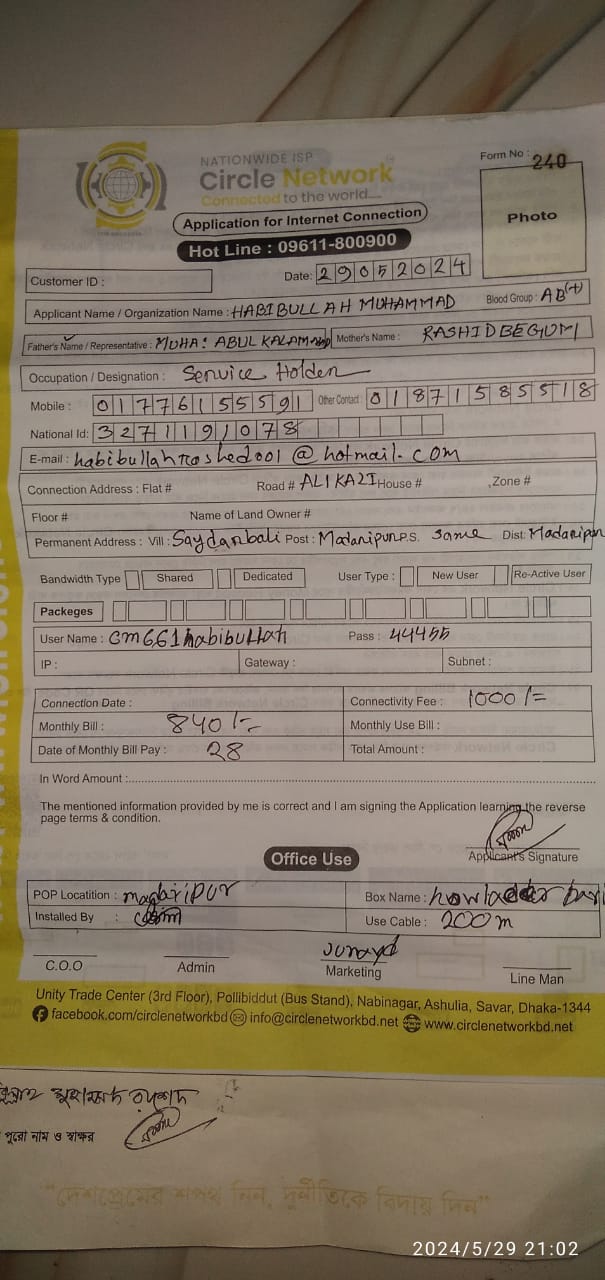 NATIONWIDE ISP
Circle Network
Connected to the world....
Form No : 240
Photo
Application for Internet Connection
Hot Line : 09611-800900
Customer ID :
Date: 29052024
Applicant Name / Organization Name : HABIBULLAH MUHAMMAD Blood Group : AB(+)
Father's Name / Representative : MUHA: ABUL KALAM Mother's Name : RASHIDBEGUM
Occupation / Designation : Service Holder
Mobile : 01776155591 Other Contact : 01871585518
National Id: 3271191078
E-mail : habibullahroshed001@hotmail.com
Connection Address : Flat # Road # ALIKAZI House # ,Zone #
Floor # Name of Land Owner #
Permanent Address : Vill : Saydarbali Post : Madaripur P.S. Same Dist: Madaripur
Bandwidth Type Shared Dedicated User Type : New User Re-Active User
Packeges
User Name : cm661habibullah Pass : 44455
IP : Gateway : Subnet :
Connection Date : Connectivity Fee : 1000/=
Monthly Bill : 840/= Monthly Use Bill :
Date of Monthly Bill Pay : 28 Total Amount :
In Word Amount :
The mentioned information provided by me is correct and I am signing the Application learning the reverse
page terms & condition.
Applicant's Signature
Office Use
POP Locatition : madaripur Box Name : howlader bari
Installed By : Use Cable : 200m
Junayd
C.O.O Admin Marketing Line Man
Unity Trade Center (3rd Floor), Pollibiddut (Bus Stand), Nabinagar, Ashulia, Savar, Dhaka-1344
facebook.com/circlenetworkbd info@circlenetworkbd.net www.circlenetworkbd.net
মুহাম্মদ রাশেদ
পুরো নাম ও স্বাক্ষর
"দেশপ্রেমের শপথ নিন, দুর্নীতিকে বিদায় দিন"
2024/5/29 21:02